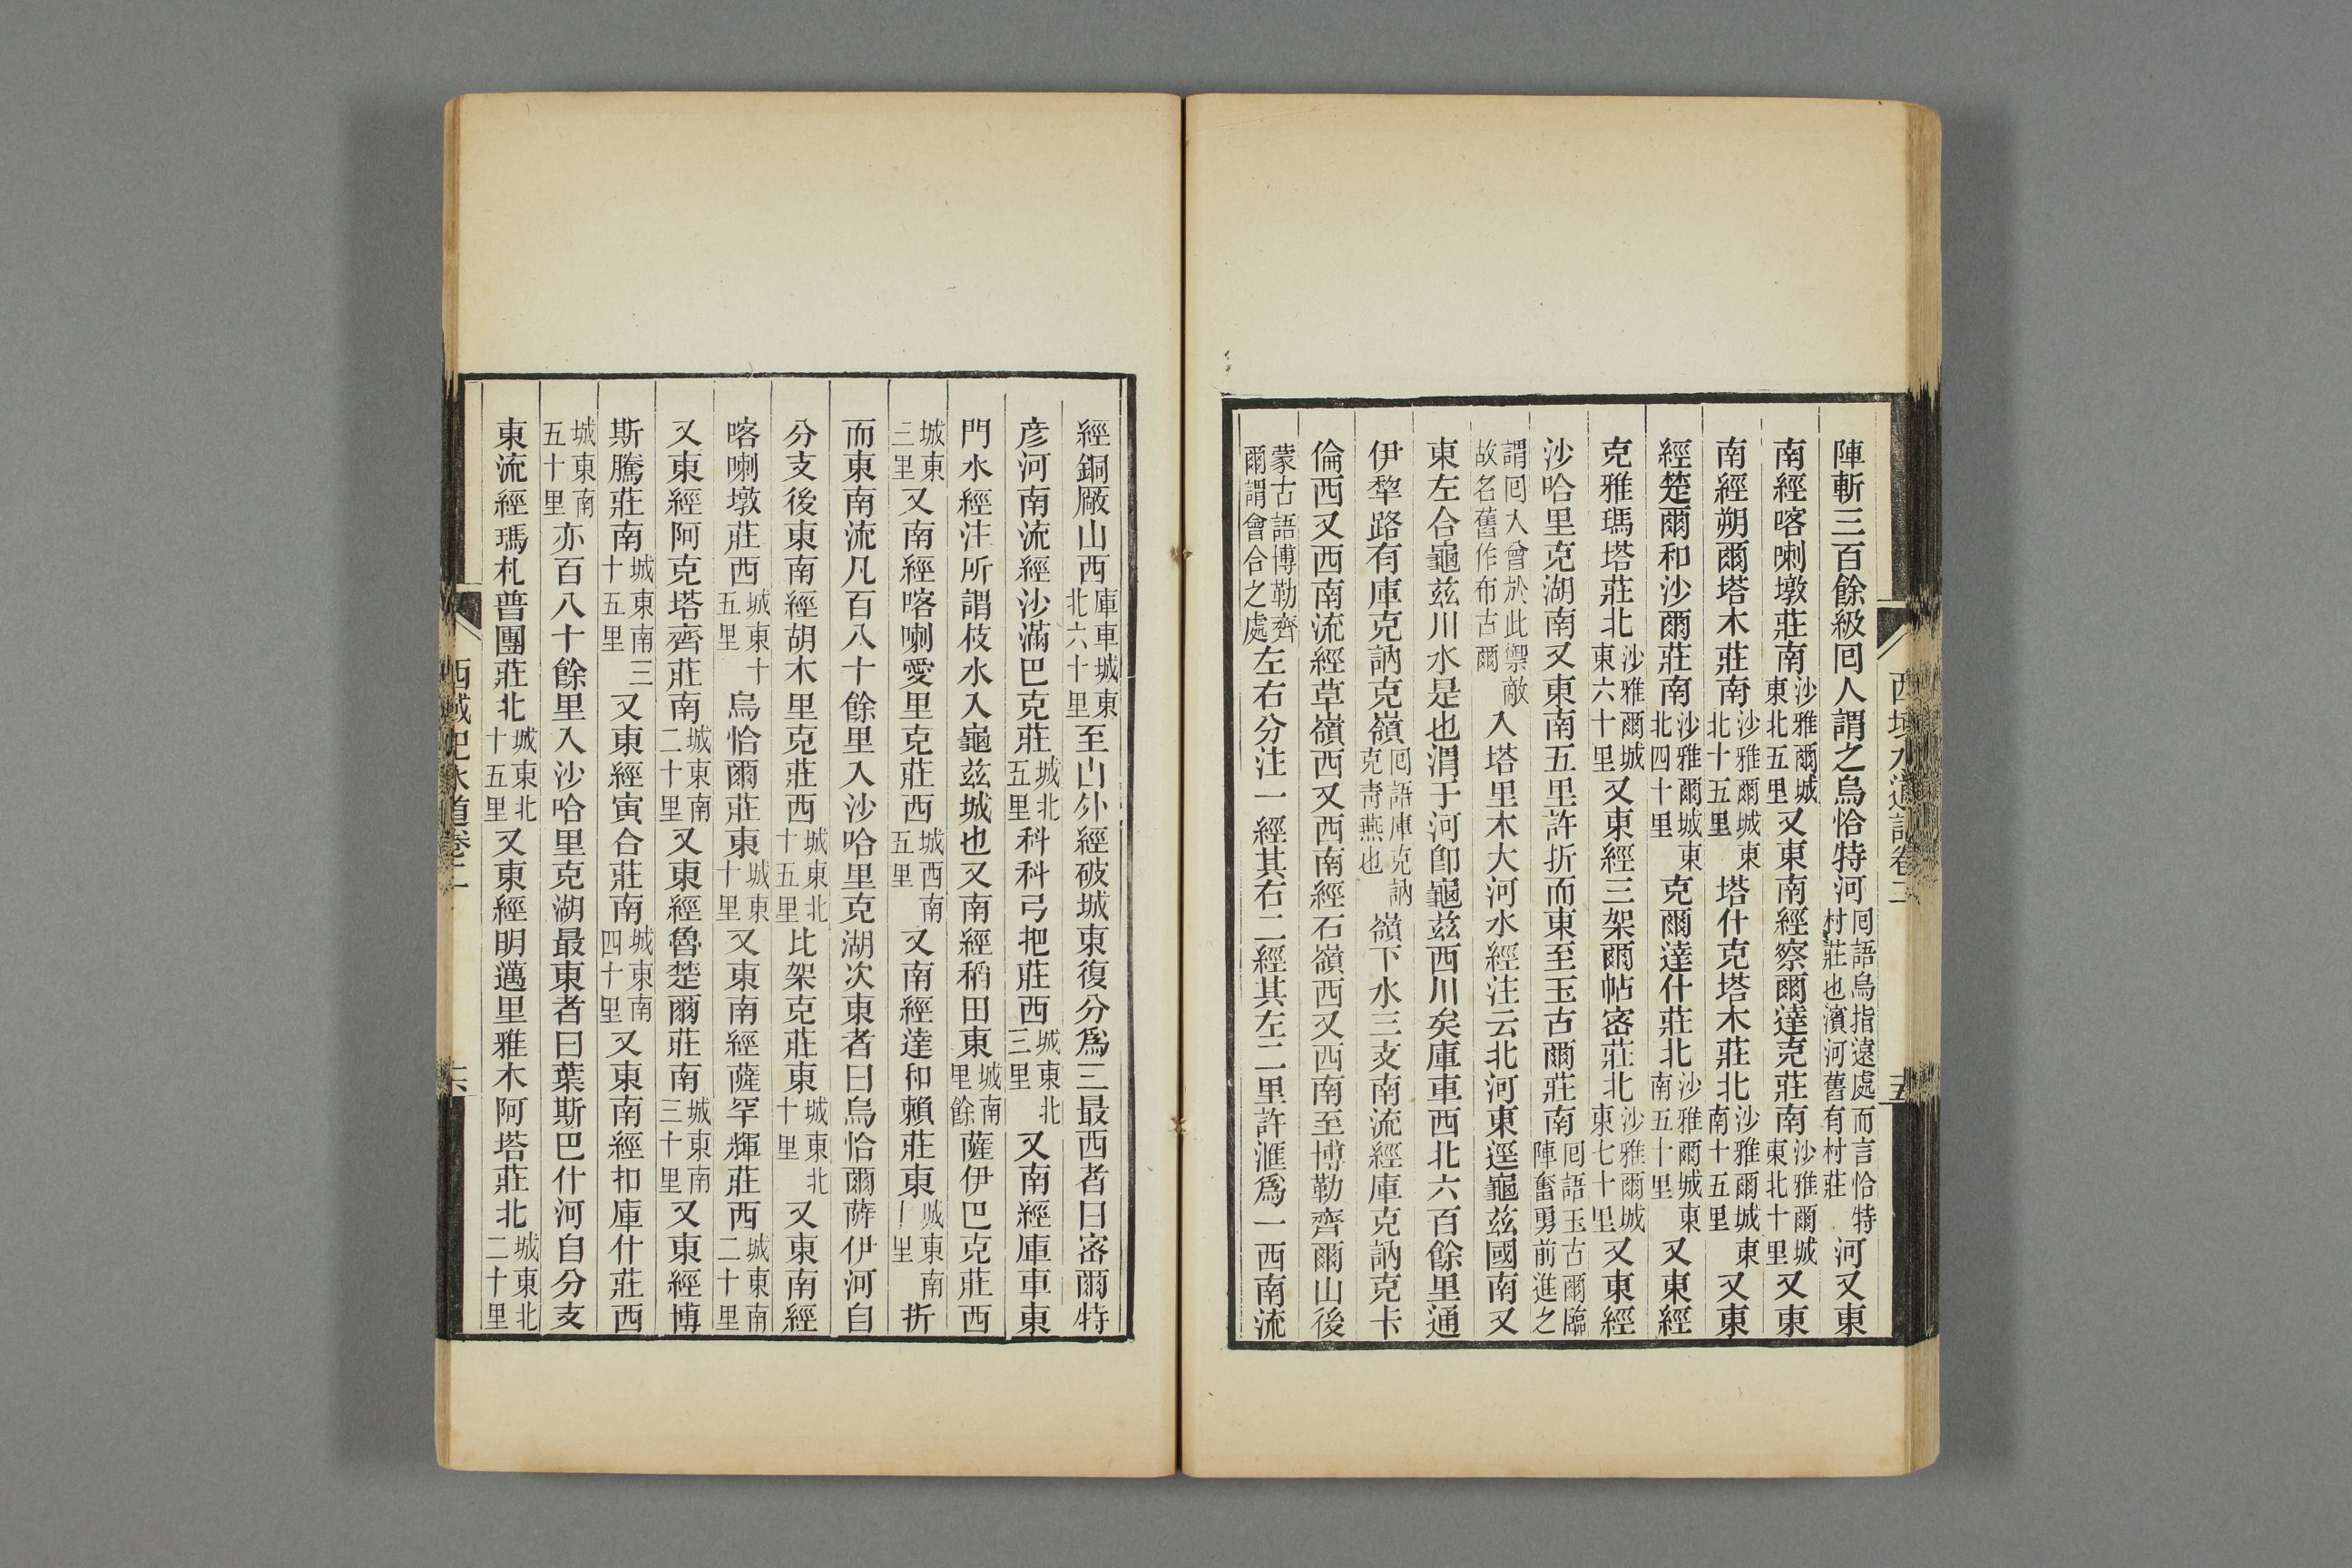 陣斬三百餘級囘人謂之烏恰特河囘語烏指遠處而言恰特村莊也濱河舊有村莊河又東
南經喀喇墩莊南沙雅爾城東北五里又東南經察爾達克莊南沙雅爾城東北十里又東
南經朔爾塔木莊南沙雅爾城東北十五里塔什克塔木莊北沙雅爾城東南十五里又東
經楚爾和沙爾莊南沙雅爾城東北四十里克爾達什莊北沙雅爾城東南五十里又東經
克雅瑪塔莊北沙雅爾城東六十里又東經三架爾帖密莊北沙雅爾城東七十里又東經
沙哈里克湖南又東南五里許折而東至玉古爾莊南囘語玉古爾臨陣奮勇前進之
謂囘人曾於此禦敵故名舊作布古爾入塔里木大河水經注云北河東逕龜茲國南又
東左合龜茲川水是也渭于河卽龜茲西川矣庫車西北六百餘里通
伊犂路有庫克訥克嶺囘語庫克訥克靑燕也嶺下水三支南流經庫克訥克卡
倫西又西南流經草嶺西又西南經石嶺西又西南至博勒齊爾山後
蒙古語博勒齊爾謂會合之處左右分注一經其右二經其左二里許滙爲一西南流
西域水道記卷二
五
經銅厰山西庫車城東北六十里至山外經破城東復分爲三最西者曰密爾特
彦河南流經沙滿巴克莊城北五里科科弓把莊西城東北三里又南經庫車東
門水經注所謂枝水入龜茲城也又南經稻田東城南里餘薩伊巴克莊西
城東三里又南經喀喇愛里克莊西城西南五里又南經達和賴莊東城東南十里折
而東南流凡百八十餘里入沙哈里克湖次東者曰烏恰爾薩伊河自
分支後東南經胡木里克莊西城東北十五里比架克莊東城東北十里又東南經
喀喇墩莊西城東十五里烏恰爾莊東城東十里又東南經薩罕輝莊西城東南二十里
又東經阿克塔齊莊南城東南二十里又東經魯楚爾莊南城東南三十里又東經博
斯騰莊南城東南三十五里又東經寅合莊南城東南四十里又東南經扣庫什莊西
城東南五十里亦百八十餘里入沙哈里克湖最東者曰葉斯巴什河自分支
東流經瑪札普團莊北城東北十五里又東經明邁里雅木阿塔莊北城東北二十里
西域水道記卷二
六